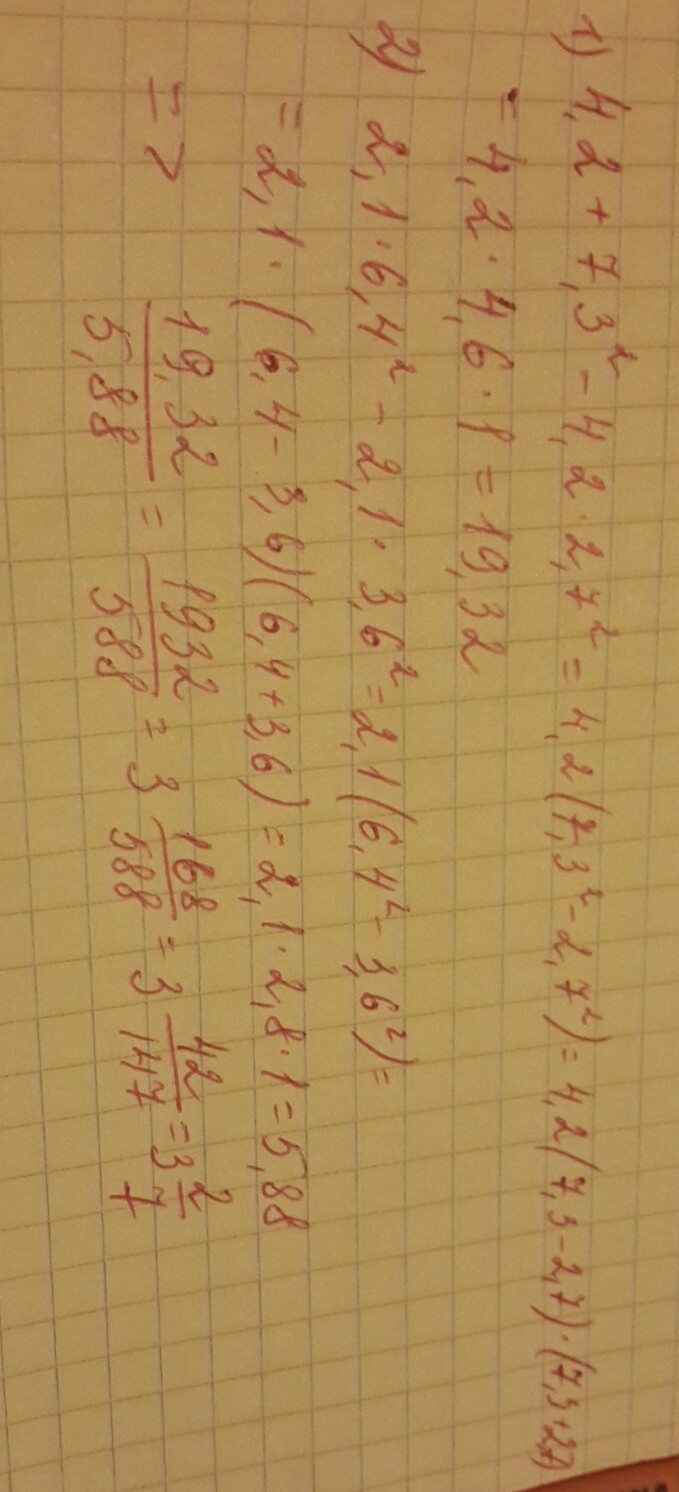 1) 4,2 + 7,3² - 4,2 · 2,7² = 4,2(7,3² - 2,7²) = 4,2(7,3 - 2,7) · (7,3 + 2,7)
= 4,2 · 4,6 · 1 = 19,32
2) 2,1 · 6,4² - 2,1 · 3,6² = 2,1(6,4² - 3,6²) =
= 2,1 · (6,4 - 3,6)(6,4 + 3,6) = 2,1 · 2,8 · 1 = 5,88
=> 19,32/5,88 = 1932/588 = 3 168/588 = 3 42/147 = 3 2/7